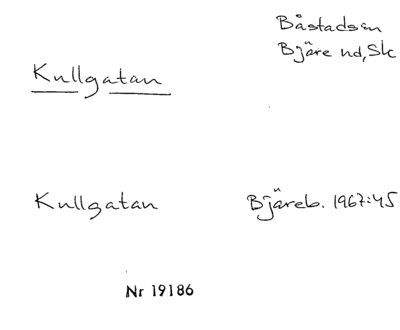 Båstads sn
Bjäre hd, Sk
Kullgatan
Kullgatan Bjäreb. 1967:45
Nr 19186